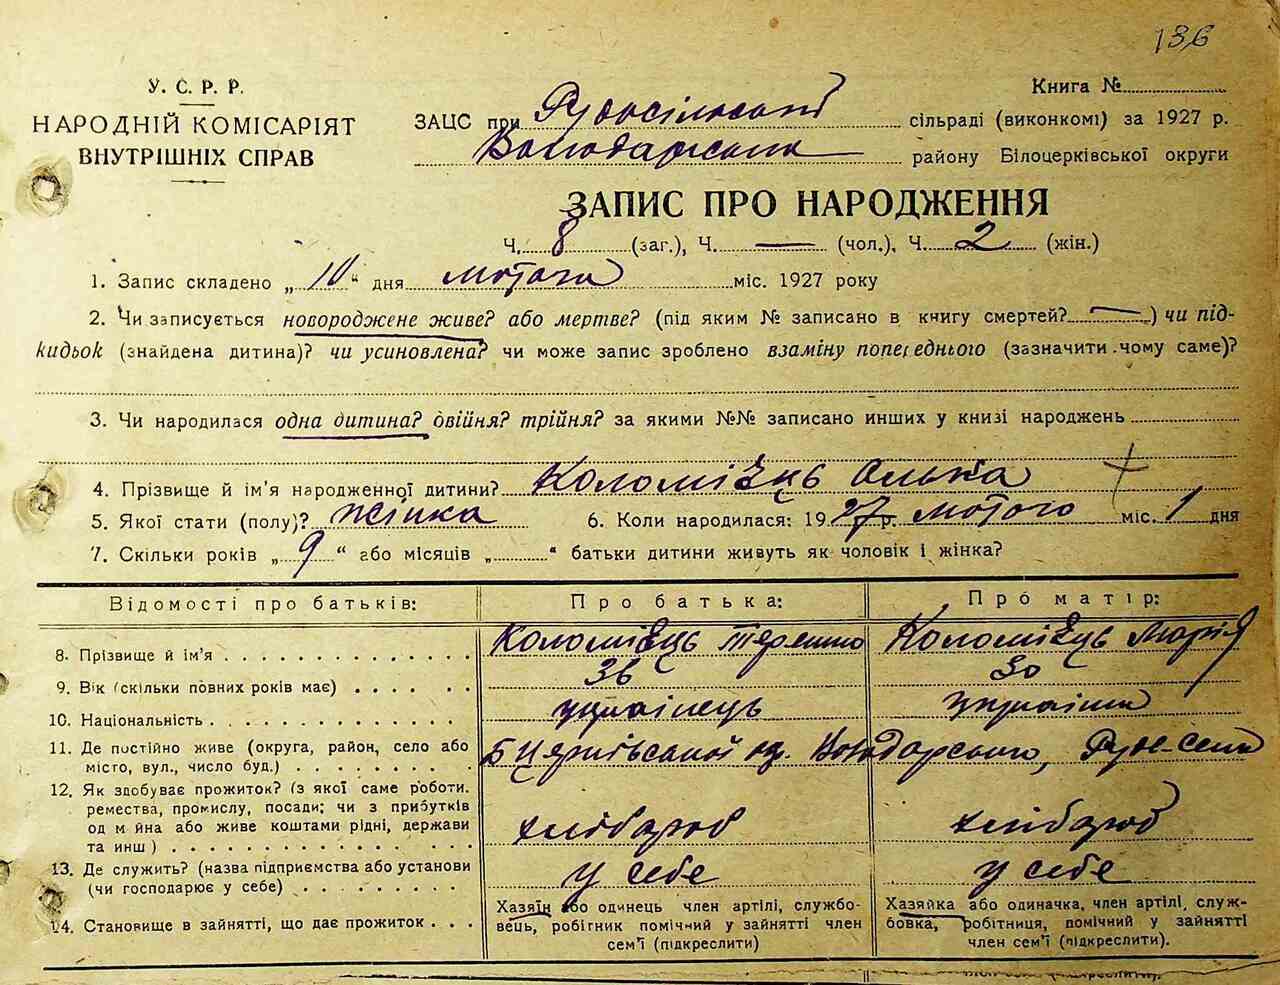 136
У. С. Р. Р.
НАРОДНІЙ КОМІСАРІЯТ
ВНУТРІШНІХ СПРАВ
Книга №
ЗАЦС при Рудосільській сільраді (виконкомі) за 1927 р.
Володарського району Білоцерківської округи
ЗАПИС ПРО НАРОДЖЕННЯ
Ч. 8 (заг.), Ч. — (чол.), Ч. 2 (жін.)
1. Запис складено „ 10 “ дня лютого міс. 1927 року
2. Чи записується новороджене живе? або мертве? (під яким № записано в книгу смертей? — ) чи під-
кидьок (знайдена дитина)? чи усиновлена? чи може запис зроблено взаміну попереднього (зазначити чому саме)?
3. Чи народилася одна дитина? двійня? трійня? за якими №№ записано инших у книзі народжень
4. Прізвище й ім’я народженної дитини? Коломієць Ольга
5. Якої стати (полу)? жінка 6. Коли народилася: 1927 р. лютого міс. 1 дня
7. Скільки років „ 9 “ або місяців „ “ батьки дитини живуть як чоловік і жінка?
Відомості про батьків: Про батька: Про матір:
8. Прізвище й ім’я Коломієць Терешко Коломієць Марія
9. Вік (скільки повних років має) 36 30
10. Національність українець українка
11. Де постійно живе (округа, район, село або
місто, вул., число буд.) Б Церківської окр. Володарського, Руде-Село
12. Як здобуває прожиток? (з якої саме роботи.
ремества, промислу, посади; чи з прибутків
од майна або живе коштами рідні, держави
та инш) хлібороб хлібороб
13. Де служить? (назва підприємства або установи
(чи господарює у себе) у себе у себе
14. Становище в зайнятті, що дає прожиток
Хазяїн або одинець член артілі, службо-
вець, робітник помічний у зайнятті член
сем’ї (підкреслити)
Хазяйка або одиначка, член артілі, служ-
бовка, робітниця, помічний у зайнятті
член сем’ї (підкреслити).